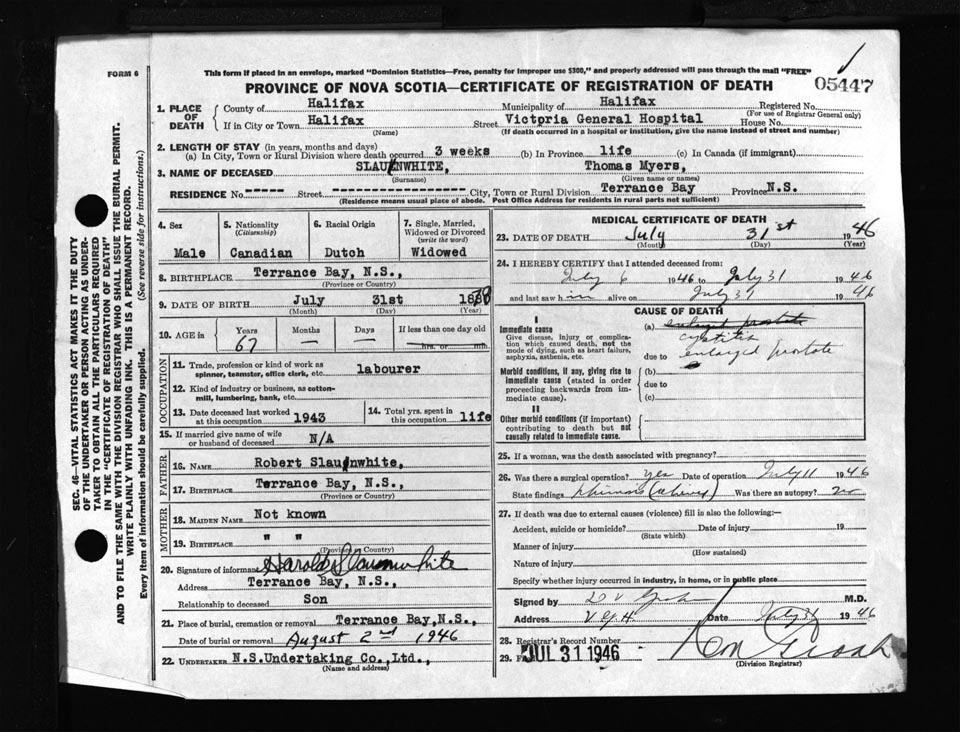 FORM 6
This form if placed in an envelope, marked "Dominion Statistics—Free, penalty for improper use $300," and properly addressed will pass through the mail "FREE"
PROVINCE OF NOVA SCOTIA—CERTIFICATE OF REGISTRATION OF DEATH
05447
1. PLACE OF DEATH
County of Halifax Municipality of Halifax Registered No.
(For use of Registrar General only)
If in City or Town Halifax Street Victoria General Hospital House No.
(Name) (If death occurred in a hospital or institution, give the name instead of street and number)
2. LENGTH OF STAY (in years, months and days)
(a) In City, Town or Rural Division where death occurred 3 weeks (b) In Province life (c) In Canada (if immigrant)
3. NAME OF DECEASED SLAUNWHITE, Thomas Myers,
(Surname) (Given name or names)
RESIDENCE No ----- Street ----------------- City, Town or Rural Division Terrance Bay Province N.S.
(Residence means usual place of abode. Post Office Address for residents in rural parts not sufficient)
4. Sex
Male
5. Nationality
(Citizenship)
Canadian
6. Racial Origin
Dutch
7. Single, Married, Widowed or Divorced
(write the word)
Widowed
8. BIRTHPLACE Terrance Bay, N.S.,
(Province or Country)
9. DATE OF BIRTH July 31st
(Month) (Day) (Year)
10. AGE in
Years Months Days If less than one day old
67 — — hrs. or min.
OCCUPATION
11. Trade, profession or kind of work as spinner, teamster, office clerk, etc. labourer
12. Kind of industry or business, as cotton-mill, lumbering, bank, etc.
13. Date deceased last worked at this occupation 1943
14. Total yrs. spent in this occupation life
15. If married give name of wife or husband of deceased N/A
FATHER
16. NAME Robert Slaunwhite,
17. BIRTHPLACE Terrance Bay, N.S.,
(Province or Country)
MOTHER
18. MAIDEN NAME Not known
19. BIRTHPLACE " "
(Province or Country)
20. Signature of informant Harold Slaunwhite
Address Terrance Bay, N.S.,
Relationship to deceased Son
21. Place of burial, cremation or removal Terrance Bay,N.S.,
Date of burial or removal August 2nd 1946
22. UNDERTAKER N.S.Undertaking Co.,Ltd.,
(Name and address)
MEDICAL CERTIFICATE OF DEATH
23. DATE OF DEATH July 31st 1946
(Month) (Day) (Year)
24. I HEREBY CERTIFY that I attended deceased from:
July 6 1946 to July 31 1946
and last saw him alive on July 31 1946
CAUSE OF DEATH
I
Immediate cause
Give disease, injury or complication which caused death, not the mode of dying, such as heart failure, asphyxia, asthenia, etc.
(a) enlarged prostate
cystitis
due to enlarged prostate
Morbid conditions, if any, giving rise to immediate cause (stated in order proceeding backwards from immediate cause).
(b)
due to
(c)
II
Other morbid conditions (if important) contributing to death but not causally related to immediate cause.
25. If a woman, was the death associated with pregnancy?
26. Was there a surgical operation? yes Date of operation July 11 1946
State findings Was there an autopsy? no
27. If death was due to external causes (violence) fill in also the following:—
Accident, suicide or homicide? Date of injury 19
(State which)
Manner of injury
(How sustained)
Nature of injury
Specify whether injury occurred in industry, in home, or in public place
Signed by M.D.
Address V G H. Date July 31 1946
28. Registrar's Record Number
29. JUL 31 1946
(Division Registrar)
SEC. 46—VITAL STATISTICS ACT MAKES IT THE DUTY
OF THE UNDERTAKER OR PERSON ACTING AS UNDER-
TAKER TO OBTAIN ALL THE PARTICULARS REQUIRED
IN THE "CERTIFICATE OF REGISTRATION OF DEATH"
AND TO FILE THE SAME WITH THE DIVISION REGISTRAR WHO SHALL ISSUE THE BURIAL PERMIT.
WRITE PLAINLY WITH UNFADING INK. THIS IS A PERMANENT RECORD.
Every item of information should be carefully supplied. (See reverse side for instructions.)